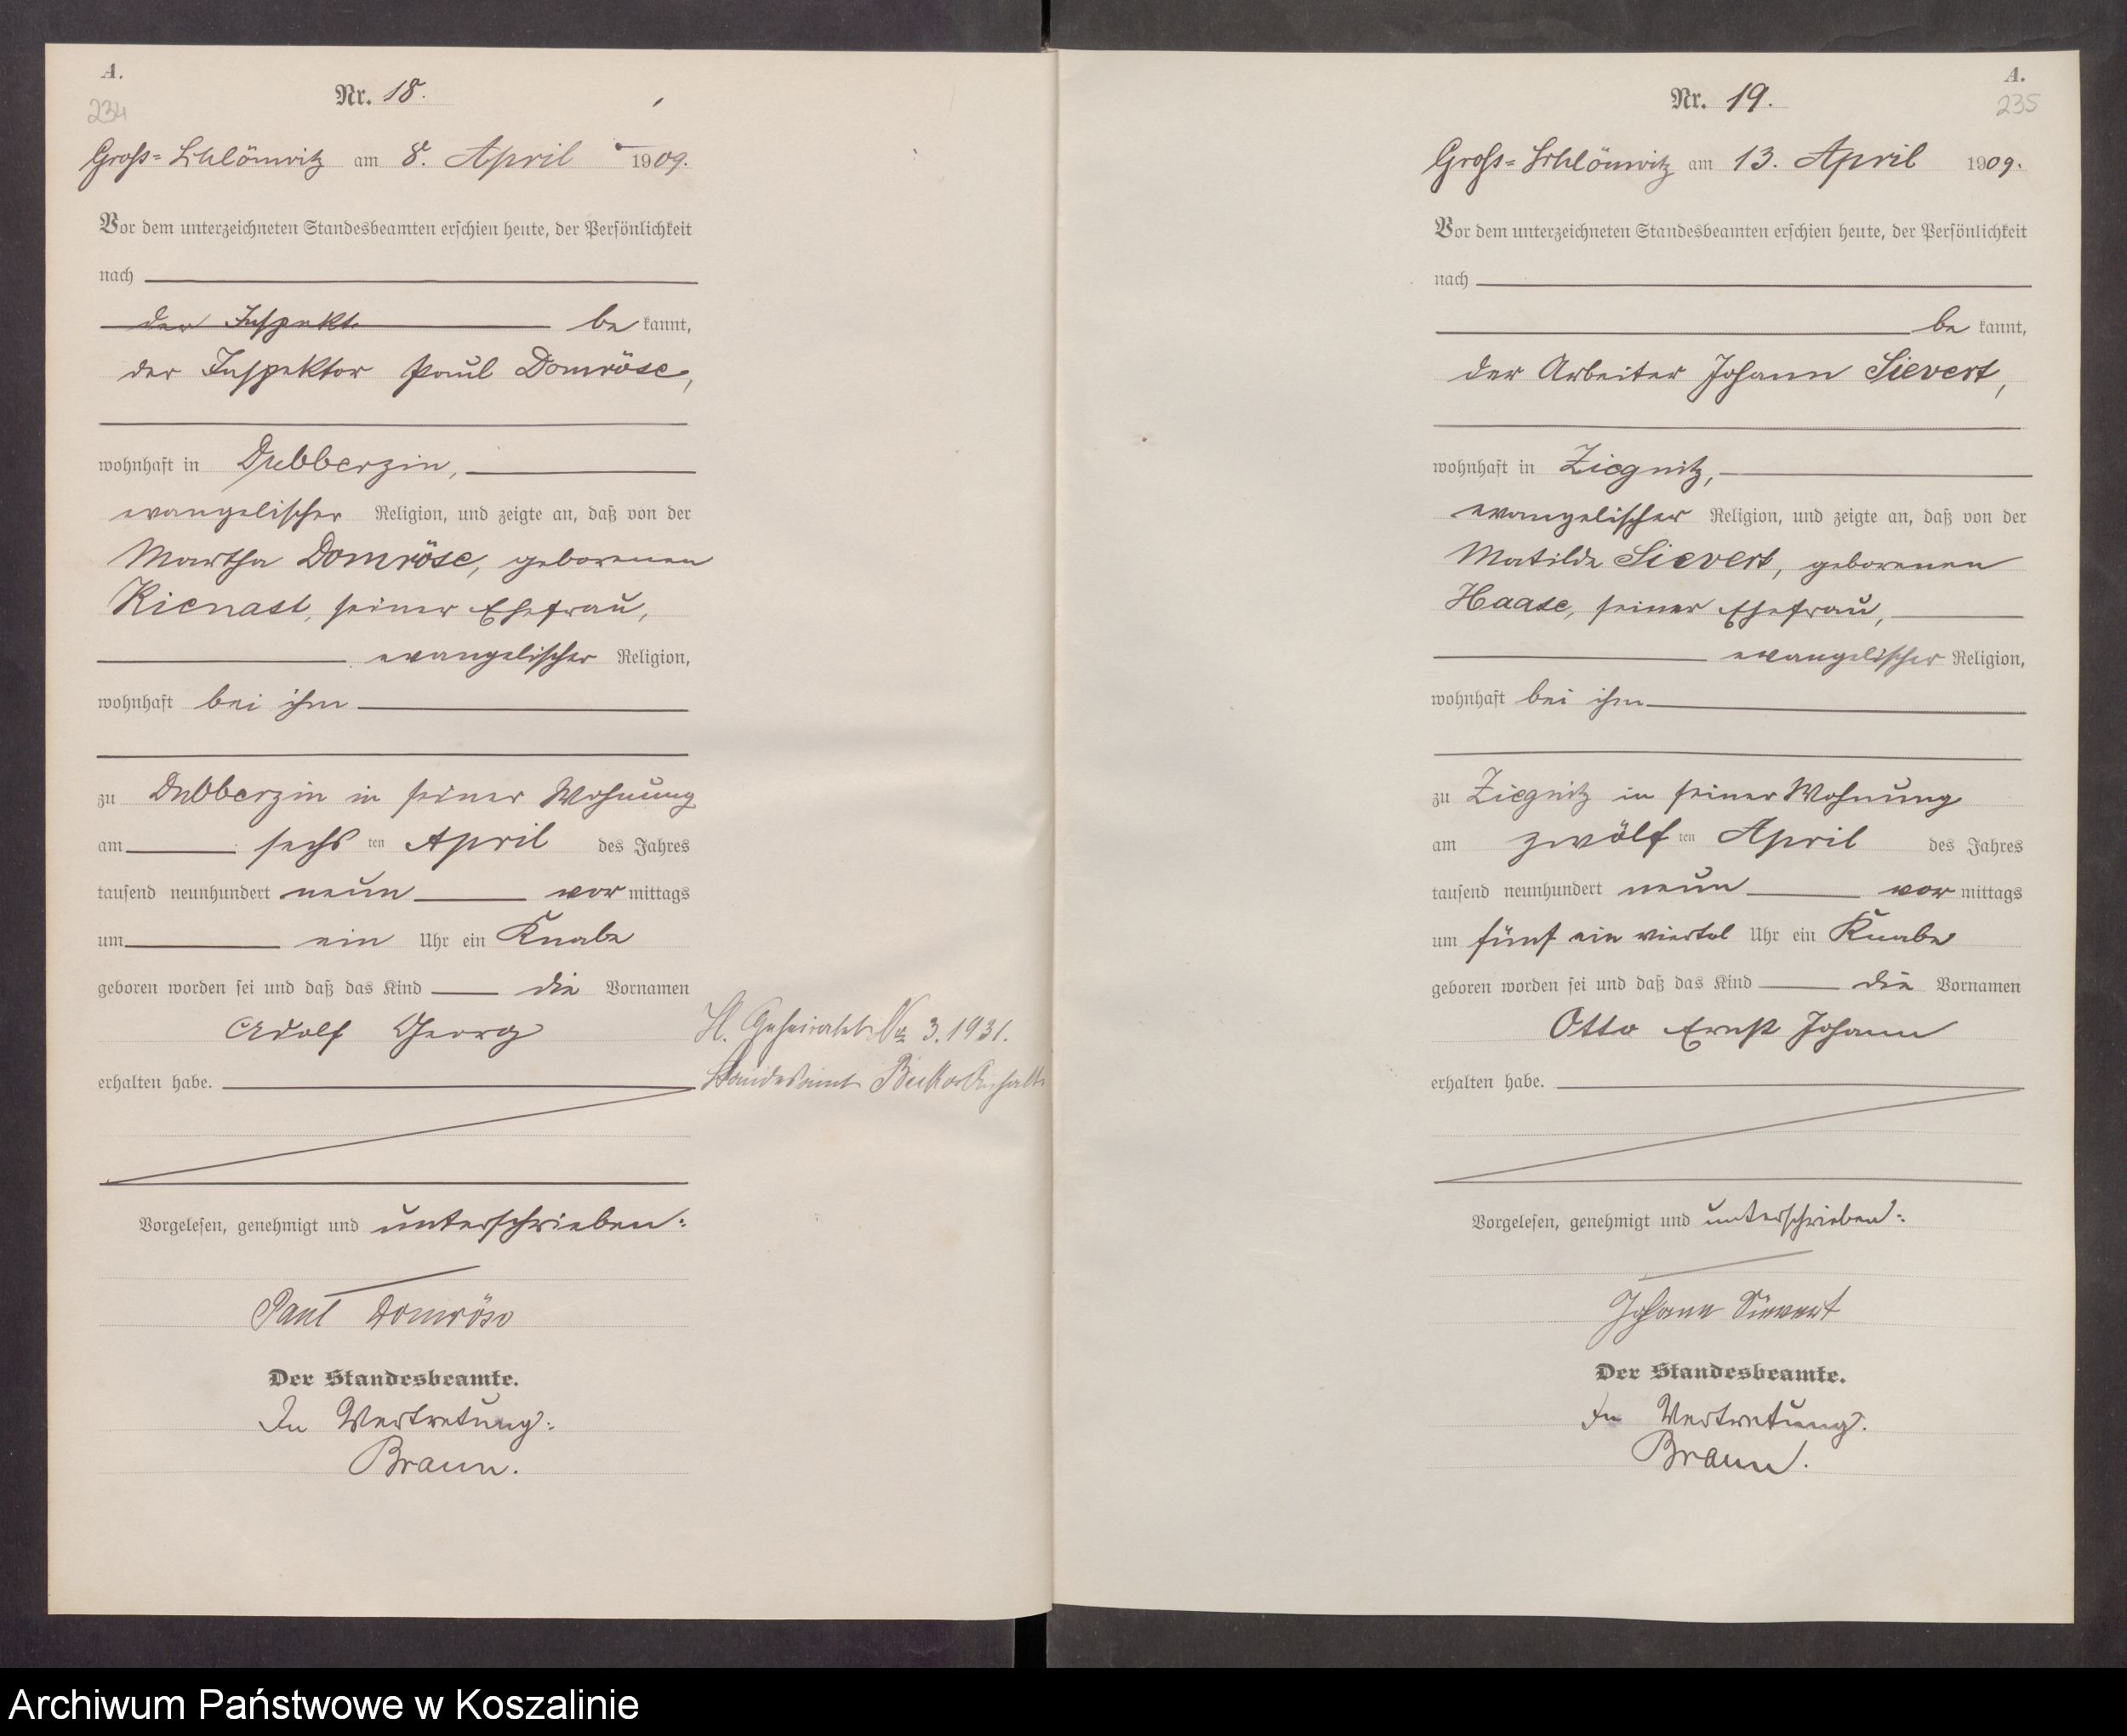 A.
234
Nr. 18.
Groß-Schlönwitz am 8. April 1909.
Vor dem unterzeichneten Standesbeamten erschien heute, der Persönlichkeit
nach
der Inspekt. be kannt,
der Inspektor Paul Domröse,
wohnhaft in Dubberzin,
evangelischer Religion, und zeigte an, daß von der
Martha Domröse, geborenen
Kienast, seiner Ehefrau,
evangelischer Religion,
wohnhaft bei ihm
zu Dubberzin in seiner Wohnung
am sechs ten April des Jahres
tausend neunhundert neun vor mittags
um ein Uhr ein Knabe
geboren worden sei und daß das Kind die Vornamen
Adolf Georg
erhalten habe.
H. Geheiratet No 3. 1931.
Standesamt
Vorgelesen, genehmigt und unterschrieben:
Paul Domröse
Der Standesbeamte.
In Vertretung:
Braun.
A.
235
Nr. 19.
Groß-Schlönwitz am 13. April 1909.
Vor dem unterzeichneten Standesbeamten erschien heute, der Persönlichkeit
nach
be kannt,
der Arbeiter Johann Sievert,
wohnhaft in Ziegnitz,
evangelischer Religion, und zeigte an, daß von der
Matilde Sievert, geborenen
Haase, seiner Ehefrau,
evangelischer Religion,
wohnhaft bei ihm
zu Ziegnitz in seiner Wohnung
am zwölf ten April des Jahres
tausend neunhundert neun vor mittags
um fünf ein viertel Uhr ein Knabe
geboren worden sei und daß das Kind die Vornamen
Otto Ernst Johann
erhalten habe.
Vorgelesen, genehmigt und unterschrieben:
Johann Sievert
Der Standesbeamte.
In Vertretung:
Braun.
Archiwum Państwowe w Koszalinie